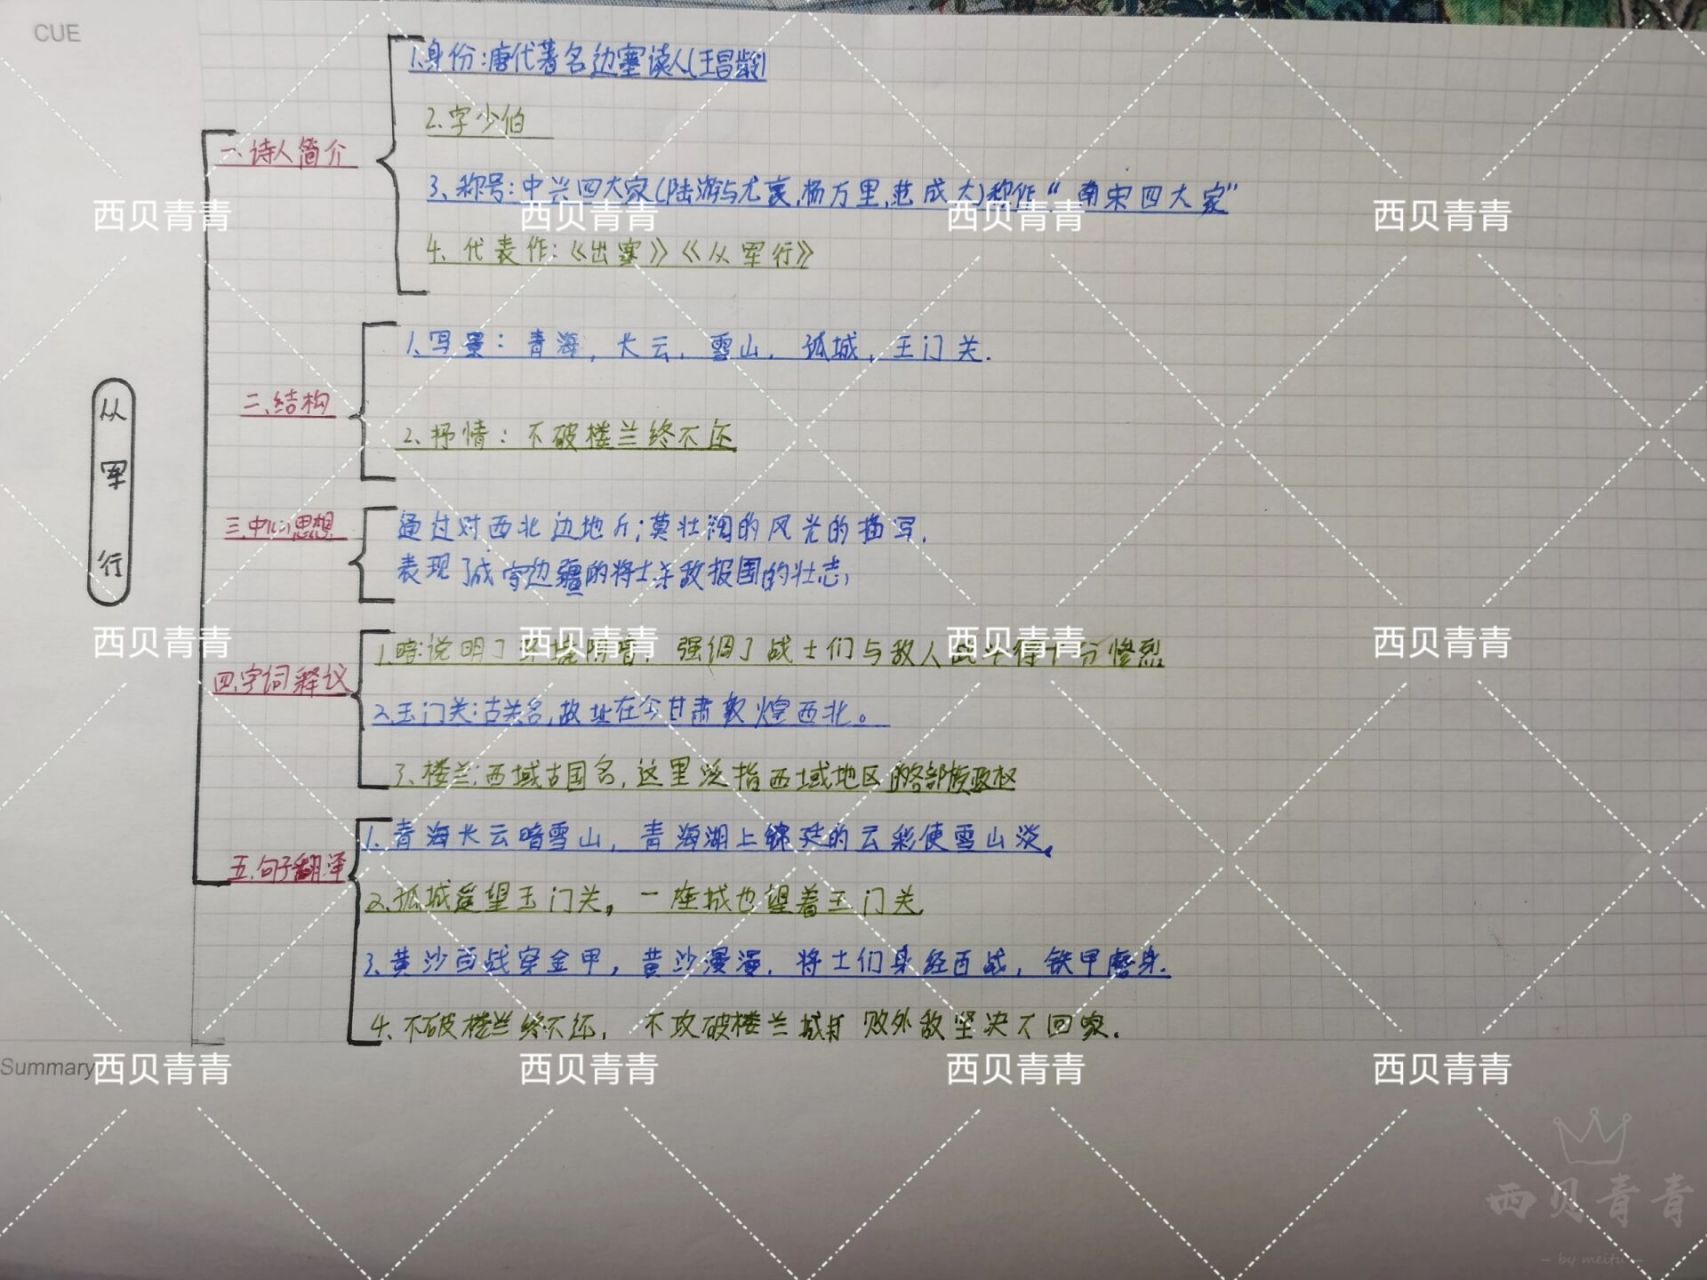 CUE
从军行
一、诗人简介
1.身份:唐代著名边塞读人(王昌龄)
2.字少伯
3、称号:中兴四大家(陆游与尤袤,杨万里,范成大)称作“南宋四大家”
4.代表作:《出塞》《从军行》
二、结构
1、写景:青海,长云,雪山,孤城,玉门关.
2.抒情:不破楼兰终不还
三.中心思想
通过对西北边地 壮阔的风光的描写,
表现了戍守边疆的将士杀敌报国的壮志,
四.字词释议
1.暗:说明了环境阴暗,强调了战士们与敌人战斗得十分惨烈
2.玉门关:古关名,故址在今甘肃敦煌西北。
3、楼兰:西域古国名,这里泛指西域地区的各部族政权
五.句子翻译
1.青海长云暗雪山,青海湖上绵延的云彩使雪山淡,
2.孤城遥望玉门关,一座城也望着玉门关
3、黄沙百战穿金甲,黄沙漫漫,将士们身经百战,铁甲磨身.
4.不破楼兰终不还,不攻破楼兰城打败外敌坚决不回家.
Summary
西贝青青 西贝青青 西贝青青 西贝青青
西贝青青 西贝青青 西贝青青 西贝青青
西贝青青 西贝青青 西贝青青 西贝青青
西贝青青
- by meitu -